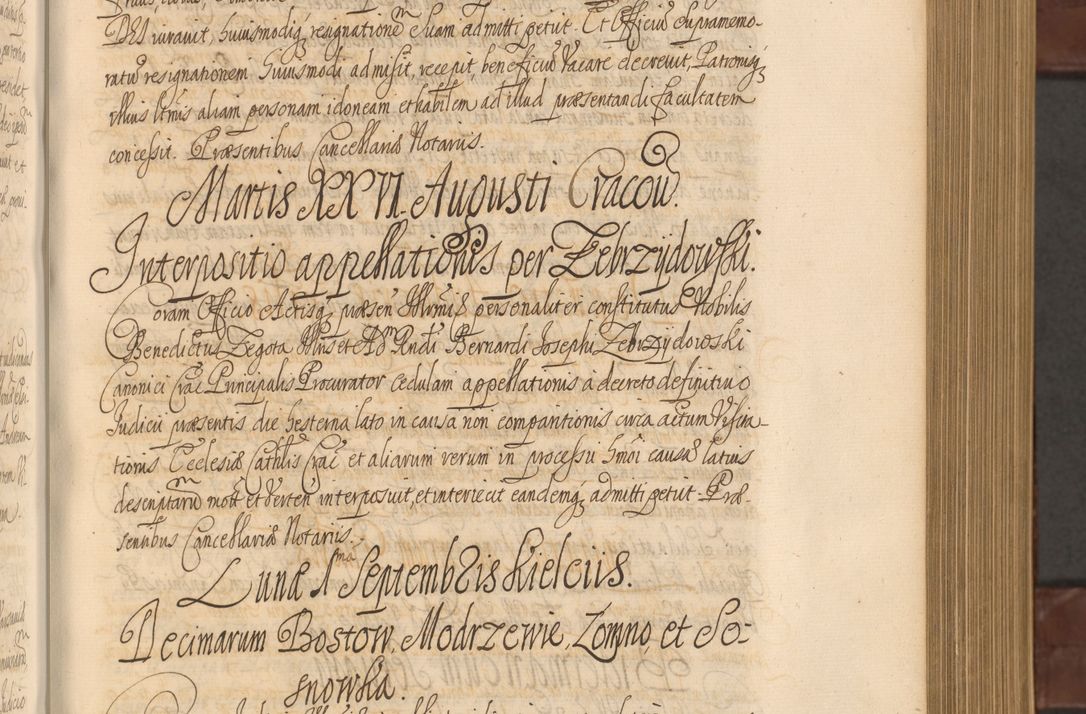 DEI iuravit, huiusmodiq resignationem etiam admitti petiit. Et Officiũ supramemo-
ratũ resignationem huiusmodi admisit, recepit, beneficiũ vacare decrevit, Patronisq
illius ltmis aliam personam idoneam et habilem ad illud præsentandi facultatem
concessit. Præsentibus Cancellariæ Notariis.
Martis XXVI. Augusti Cracoviæ.
Interpositio appellationis per Zebrzydowski.
Coram Officio Actisq præsen personaliter constitutus Nobilis
Benedictus Zegota Illris et Ad Rndi Bernardi Josephi Zebrzydowski
Canonici Crac Principalis Procurator cedulam appellationis à decreto definitivo
Judicii præsentis die hesterna lato in causa non comparitionis circa actum Visita-
tionis Ecclesiæ Cathlis Crac et aliarum rerum in processu hmõi causæ latius
descriptarũ mott et vertẽn interposuit, et interiecit eandemq admitti petiit. Præ-
sentibus Cancellariæ Notariis.
Lunæ 1ma Septembris Kielciis.
Decimarum Bostow, Modrzewie, Zomno, et So-
snowka.